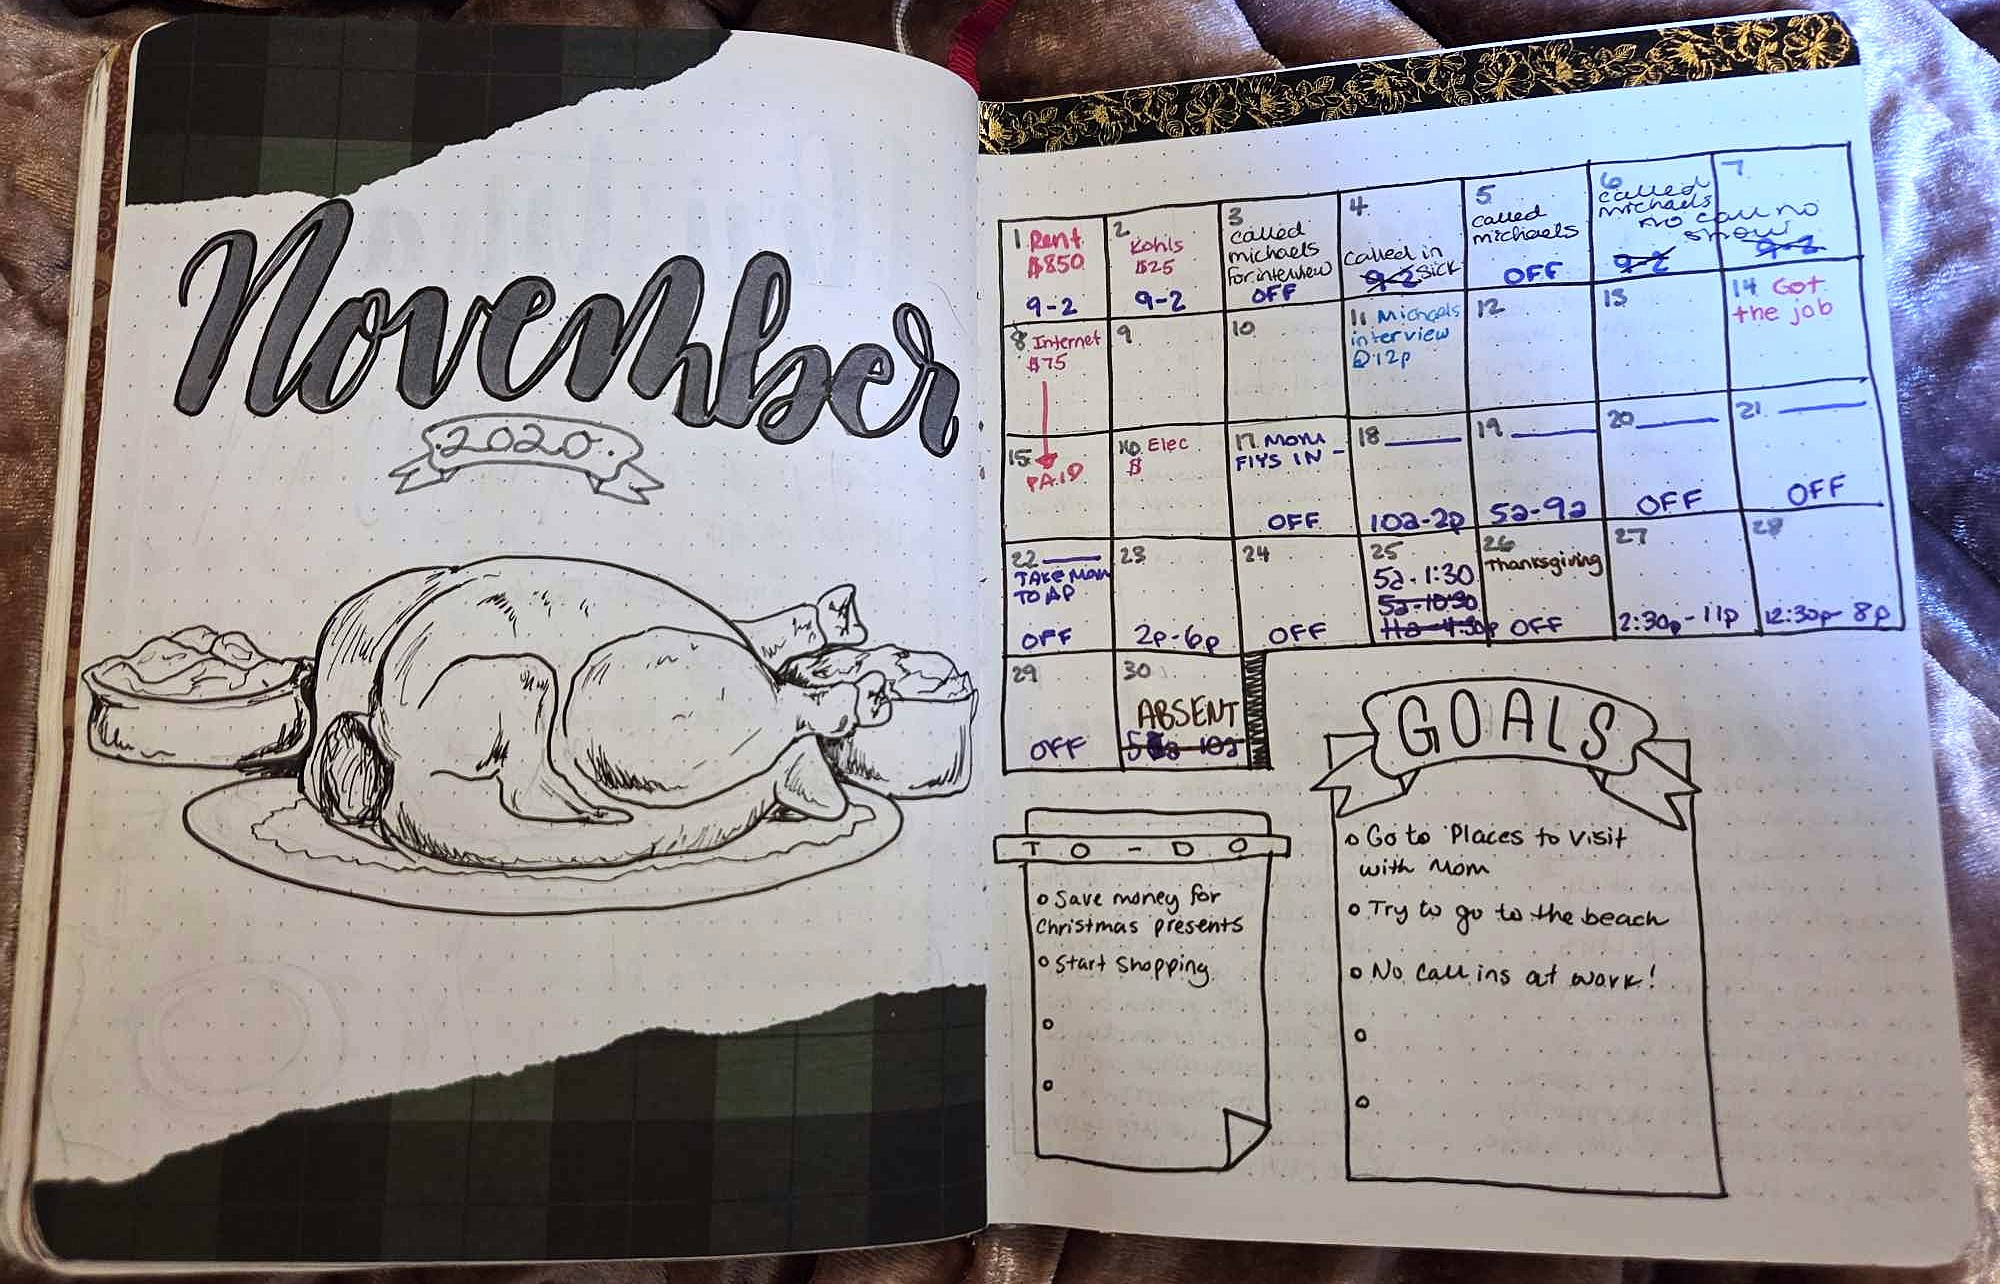 November
2020.
1 Rent
$850
9-2
2
Kohls
$25
9-2
3
called
michaels
for interview
OFF
4
called in
9-2 sick
5
called
michaels
OFF
6
called
michaels
no call no
show
9-2
7
9-2
8 Internet
$75
9
10
11 Michaels
interview
@12p
12
13
14 Got
the job
15
PAID
16 Elec
$
17 Mom
FlYS IN -
OFF
18
10a-2p
19
5a-9a
20
OFF
21
OFF
22
TAKE MOM
TO AP
OFF
23
2p-6p
24
OFF
25
5a-1:30
5a-10:30
11a-4:30p
26
Thanksgiving
OFF
27
2:30p-11p
28
12:30p-8p
29
OFF
30
ABSENT
10a
TO-DO
o Save money for
Christmas presents
o Start Shopping
o
o
GOALS
o Go to Places to visit
with Mom
o Try to go to the beach
o No call ins at work!
o
o